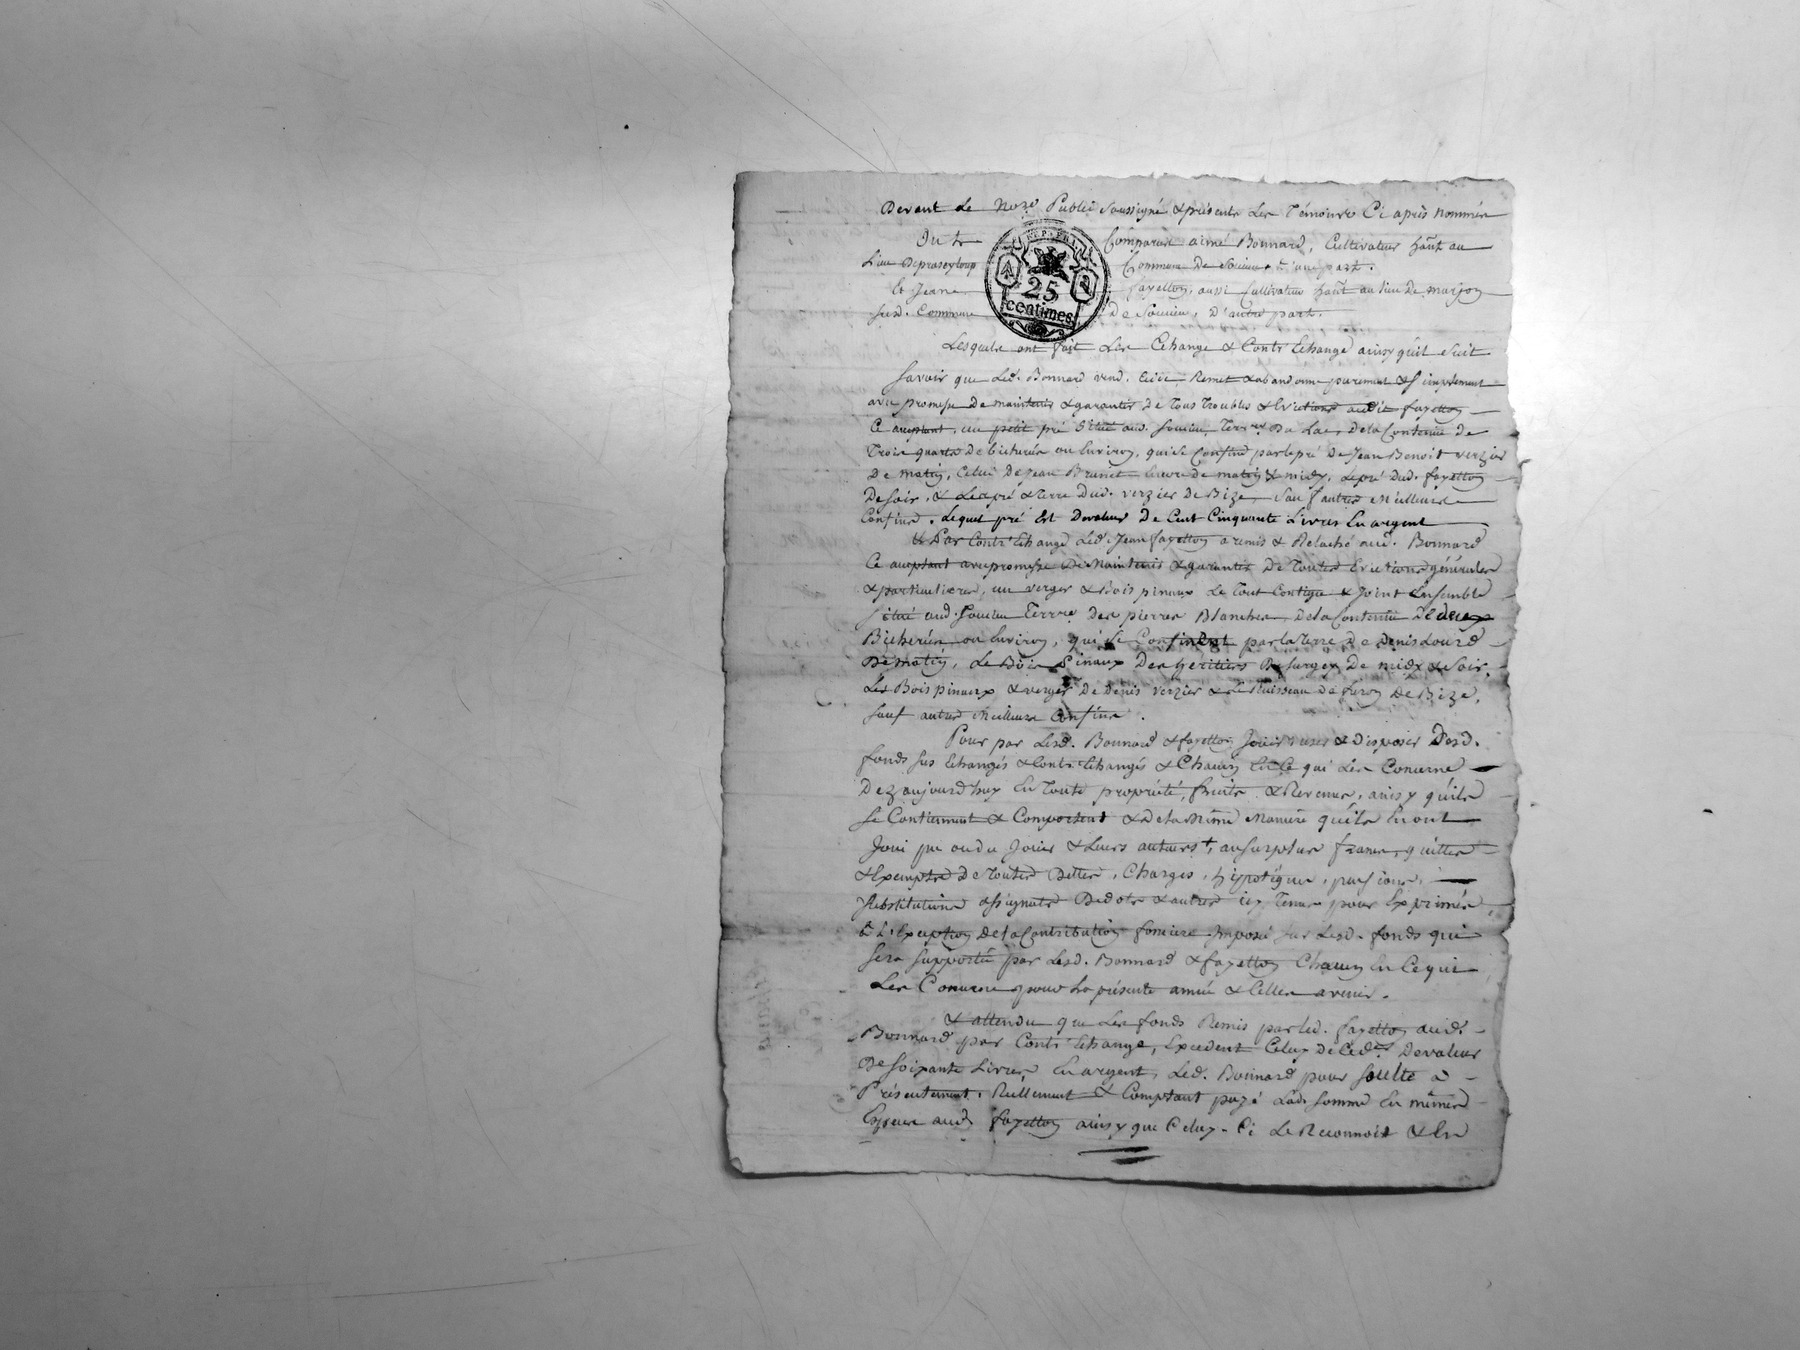 Devant le No.re Public soussigné & présents les Témoins Ci après nommés
Comparus aimé Bonnard, Cultivateur hañt au
Lieu De Commune De Soucieu d'une part.
REP. FRA.
25
centimes
Et Jean fayetton, aussi Cultivateur hañt au Lieu De marjon
sud. Commune De Soucieu, D'autre part.
Lesquels ont fait Les Echange & Contr'Echange ainsy qu'il suit
Savoir que Led. Bonnard vend, Cède Remet & abandonne purement & simplement
avec promesse De maintenir & garantir De Tous Troubles & Evictions audit fayetton
Ce acceptant, un petit pré Situé aud. Soucieu, Terr.re Du Lac, De la Contenue De
Trois quarts De bicherée ou Environ, qui se Confine par le pré De Jean Benoit verzier
De matin, Celui De Jean Brunet Encore De matin & midy, Le pré Dud. fayetton
De Soir, & Les pré & Terre Dud. verzier De Bize, Sauf autres Meilleurs
Confins. Lequel pré Est De valeur De Cent Cinquante Livres En argent
& Par Contr'Echange Led. Jean fayetton a remis & Relaché aud. Bonnard
Ce acceptant avec promesse De Maintenir & garantir De Toutes Evictions générales
& particulieres, un verger & Bois pinaux Le Tout Contigu & Joint Ensemble
Situé aud. Soucieu Terr.re Des pierres Blanches De la Contenue De deux
Bicherées ou Environ, qui se Confinent par la Terre De Denis
De matin, Le Bois Pinaux Des héritiers De midy & Soir,
Les Bois pinaux & verger De Denis verzier & Le Ruisseau de furon De Bize,
Sauf autres Meilleurs Confins.
Pour par Lesd. Bonnard & fayetton Jouir user & Disposer Desd.
fonds sus Echangés & Contr'Echangés & Chacun En Ce qui Les Concerne
Dez aujourd'huy En Toute propriété, fruits & Revenus, ainsy qu'ils
se Contiennent & Comportent & De la Même Maniere qu'ils En ont
Joui pu ou du Jouir & Leurs auteurs +, au surplus francs, quittes
& Exempts De Toutes Dettes, Charges, hippotéques, pensions,
Substitutions assignats De dots & autres icy Tenus pour Exprimés,
à L'Exception De la Contribution fonciere Imposée sur Lesd. fonds qui
sera supportée par Lesd. Bonnard & fayetton Chacun En Ce qui
Les Concerne pour La présente année & Celles avenir.
& attendu que Les fonds Remis par Led. fayetton aud.
Bonnard par Contr'Echange, Excedent Celuy De Valeur
De Soixante Livres En argent, Led. Bonnard pour Soulte a
Présentement, Réellement & Comptant payé Lad. somme En mêmes
Especes aud. fayetton ainsy que Celuy-Ci Le Reconnoit & En